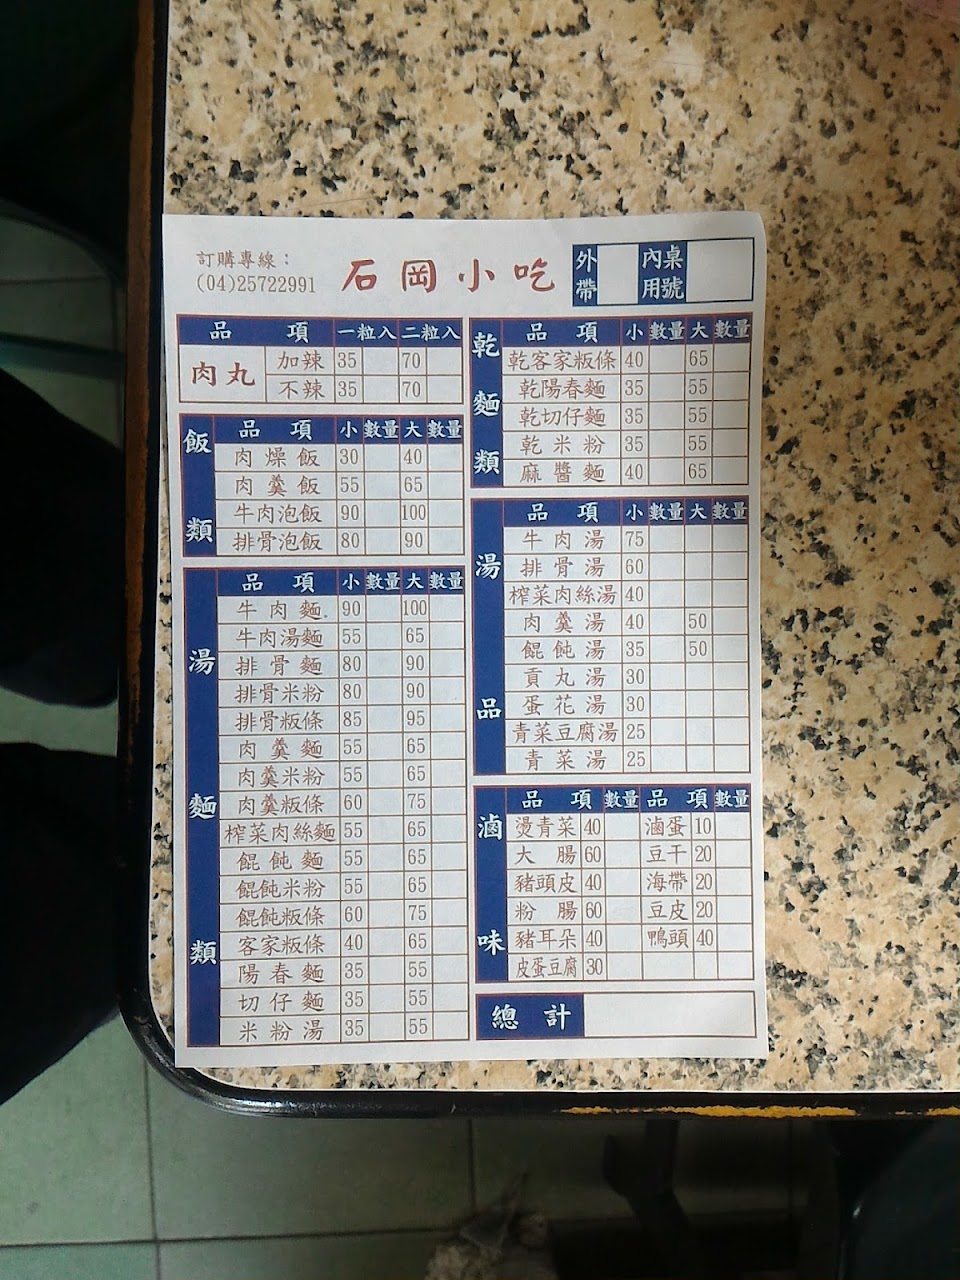 訂購專線：
(04)25722991
石岡小吃
外帶
內用 桌號
品項 一粒入 二粒入
肉丸
加辣 35 70
不辣 35 70
飯類
品項 小 數量 大 數量
肉燥飯 30 40
肉羹飯 55 65
牛肉泡飯 90 100
排骨泡飯 80 90
湯麵類
品項 小 數量 大 數量
牛肉麵 90 100
牛肉湯麵 55 65
排骨麵 80 90
排骨米粉 80 90
排骨粄條 85 95
肉羹麵 55 65
肉羹米粉 55 65
肉羹粄條 60 75
榨菜肉絲麵 55 65
餛飩麵 55 65
餛飩米粉 55 65
餛飩粄條 60 75
客家粄條 40 65
陽春麵 35 55
切仔麵 35 55
米粉湯 35 55
乾麵類
品項 小 數量 大 數量
乾客家粄條 40 65
乾陽春麵 35 55
乾切仔麵 35 55
乾米粉 35 55
麻醬麵 40 65
湯品
品項 小 數量 大 數量
牛肉湯 75
排骨湯 60
榨菜肉絲湯 40
肉羹湯 40 50
餛飩湯 35 50
貢丸湯 30
蛋花湯 30
青菜豆腐湯 25
青菜湯 25
滷味
品項 數量 品項 數量
燙青菜 40 滷蛋 10
大腸 60 豆干 20
豬頭皮 40 海帶 20
粉腸 60 豆皮 20
豬耳朵 40 鴨頭 40
皮蛋豆腐 30
總計